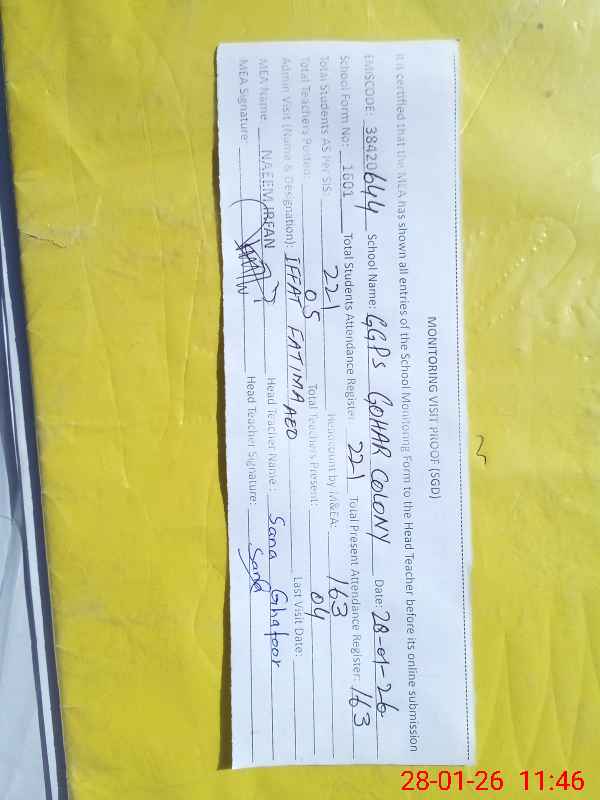 MONITORING VISIT PROOF (SGD)
It is certified that the MEA has shown all entries of the School Monitoring Form to the Head Teacher before its online submission
EMISCODE: 38420644 School Name: GGPS GOHAR COLONY Date: 28-01-26
School Form No: 1601 Total Students Attendance Register: 221 Total Present Attendance Register: 163
Total Students AS Per SIS: 221 Headcount by M&EA: 163
Total Teachers Posted: 05 Total Teachers Present: 04
Admin Visit (Name & Designation): IFFAT FATIMA AEO Last Visit Date:
MEA Name: NAEEM IRFAN Head Teacher Name: Sana Ghafoor
MEA Signature: Head Teacher Signature: Sana
28-01-26 11:46